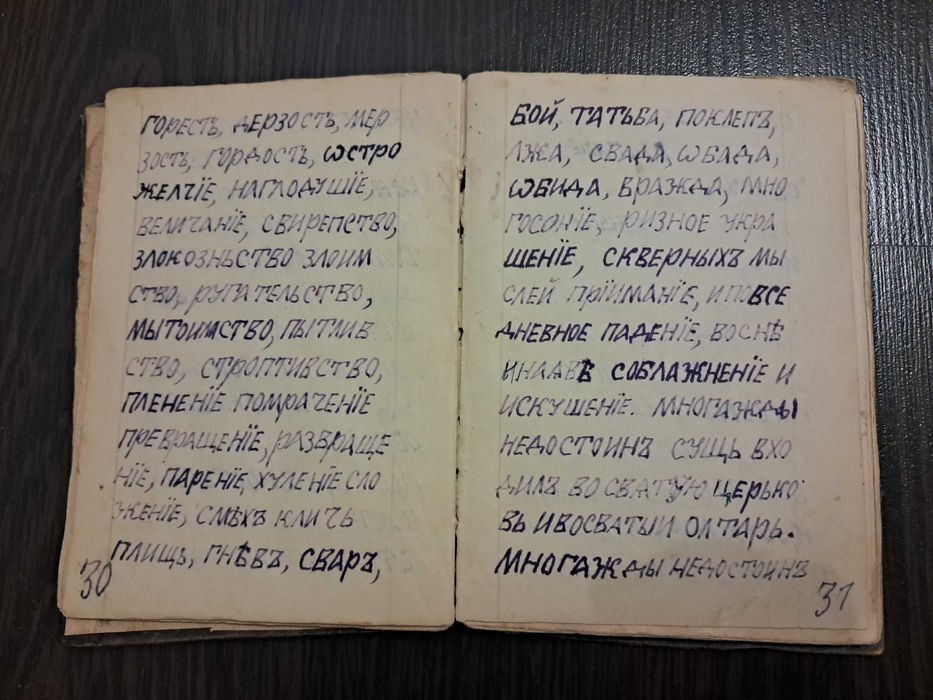 ГОРЕСТЬ, ДЕРЗОСТЬ, МЕР
ЗОСТЬ, ГОРДОСТЬ, ѠСТРО
ЖЕЛЧЇЕ, НАГЛОДУШЇЕ,
ВЕЛИЧАНЇЕ, СВИРЕПСТВО,
ЗЛОКОЗНЬСТВО ЗЛОИМ
СТВО, РУГАТЕЛЬСТВО,
МЫТОИМСТВО, ПЫТЛИВ
СТВО, СТРОПТИВСТВО,
ПЛЕНЕНЇЕ ПОМРАЧЕНЇЕ
ПРЕВРАЩЕНЇЕ, РАЗВРАЩЕ
НЇЕ, ПАРЕНЇЕ, ХУЛЕНЇЕ СЛО
ЖЕНЇЕ, СМѢХЪ КЛИЧЬ
ПЛИЩЬ, ГНѢВЪ, СВАРЪ,
30
БОЙ, ТАТЬБА, ПОКЛЕПЪ,
ЛЖА, СВАДА, ѠБАДА,
ѠБИДА, ВРАЖДА, МНО
ГОСОНЇЕ, РИЗНОЕ УКРА
ШЕНЇЕ, СКВЕРНЫХЪ МЫ
СЛЕЙ ПРЇИМАНЇЕ, И ПОВСЕ
ДНЕВНОЕ ПАДЕНЇЕ, ВОСНѢ
ИНААВѢ СОБЛАЖНЕНЇЕ И
ИСКУШЕНЇЕ. МНОГАЖДЫ
НЕДОСТОИНЪ СУЩЬ ВХО
ДИЛЪ ВО СВАТУЮ ЦЕРЬКО
ВЬ И ВОСВАТЫИ ОЛТАРЬ.
МНОГАЖДЫ НЕДОСТОИНЪ
31